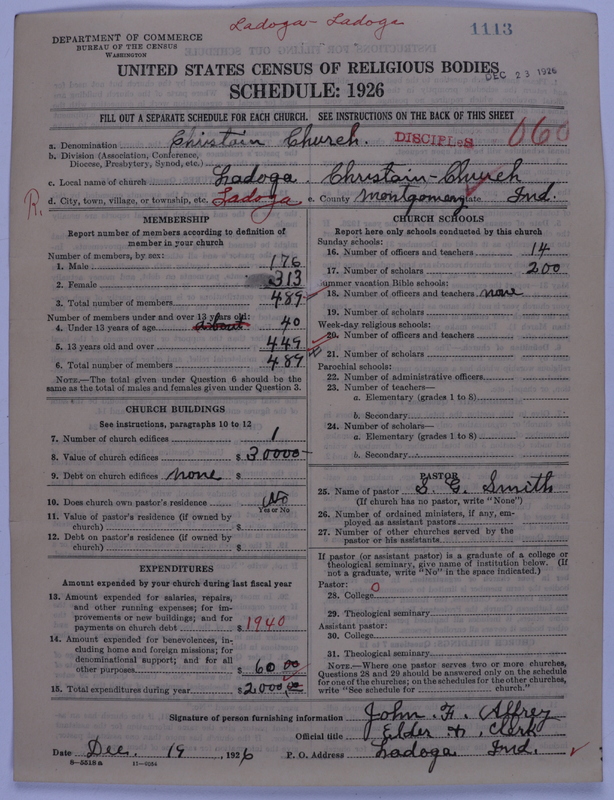 Ladoga - Ladoga
1113
DEPARTMENT OF COMMERCE
BUREAU OF THE CENSUS
WASHINGTON
UNITED STATES CENSUS OF RELIGIOUS BODIES
DEC 23 1926
SCHEDULE: 1926
FILL OUT A SEPARATE SCHEDULE FOR EACH CHURCH. SEE INSTRUCTIONS ON THE BACK OF THIS SHEET
a. Denomination Christain Church. DISCIPLES 060
b. Division (Association, Conference, Diocese, Presbytery, Synod, etc.)
c. Local name of church Ladoga. Christain-Church
R. d. City, town, village, or township, etc. Ladoga e. County Montgomery State Ind.
MEMBERSHIP
Report number of members according to definition of member in your church
Number of members, by sex:
1. Male 176
2. Female 313
3. Total number of members 489
Number of members under and over 13 years old:
4. Under 13 years of age about 40
5. 13 years old and over 449
6. Total number of members 489
NOTE.—The total given under Question 6 should be the same as the total of males and females given under Question 3.
CHURCH BUILDINGS
See instructions, paragraphs 10 to 12
7. Number of church edifices 1
8. Value of church edifices $ 30000
9. Debt on church edifices none $
10. Does church own pastor's residence No
Yes or No
11. Value of pastor's residence (if owned by church) $
12. Debt on pastor's residence (if owned by church) $
EXPENDITURES
Amount expended by your church during last fiscal year
13. Amount expended for salaries, repairs, and other running expenses; for improvements or new buildings; and for payments on church debt $ 1940
14. Amount expended for benevolences, including home and foreign missions; for denominational support; and for all other purposes $ 60 00
15. Total expenditures during year $ 2000.00
CHURCH SCHOOLS
Report here only schools conducted by this church
Sunday schools:
16. Number of officers and teachers 14
17. Number of scholars 200
Summer vacation Bible schools:
18. Number of officers and teachers none
19. Number of scholars
Week-day religious schools:
20. Number of officers and teachers
21. Number of scholars
Parochial schools:
22. Number of administrative officers
23. Number of teachers—
a. Elementary (grades 1 to 8)
b. Secondary
24. Number of scholars—
a. Elementary (grades 1 to 8)
b. Secondary
PASTOR
25. Name of pastor S. G. Smith
(If church has no pastor, write "None")
26. Number of ordained ministers, if any, employed as assistant pastors
27. Number of other churches served by the pastor or his assistants
If pastor (or assistant pastor) is a graduate of a college or theological seminary, give name of institution below. (If not a graduate, write "No" in the space indicated.)
Pastor:
28. College 0
29. Theological seminary
Assistant pastor:
30. College
31. Theological seminary
NOTE.—Where one pastor serves two or more churches, Questions 28 and 29 should be answered only on the schedule for one of the churches; on the schedules for the other churches, write "See schedule for church."
Signature of person furnishing information John. F. Affrey
Official title Elder & Clerk
Date Dec. 19, 1926 P. O. Address Ladoga Ind.
8-5518a 11-6084